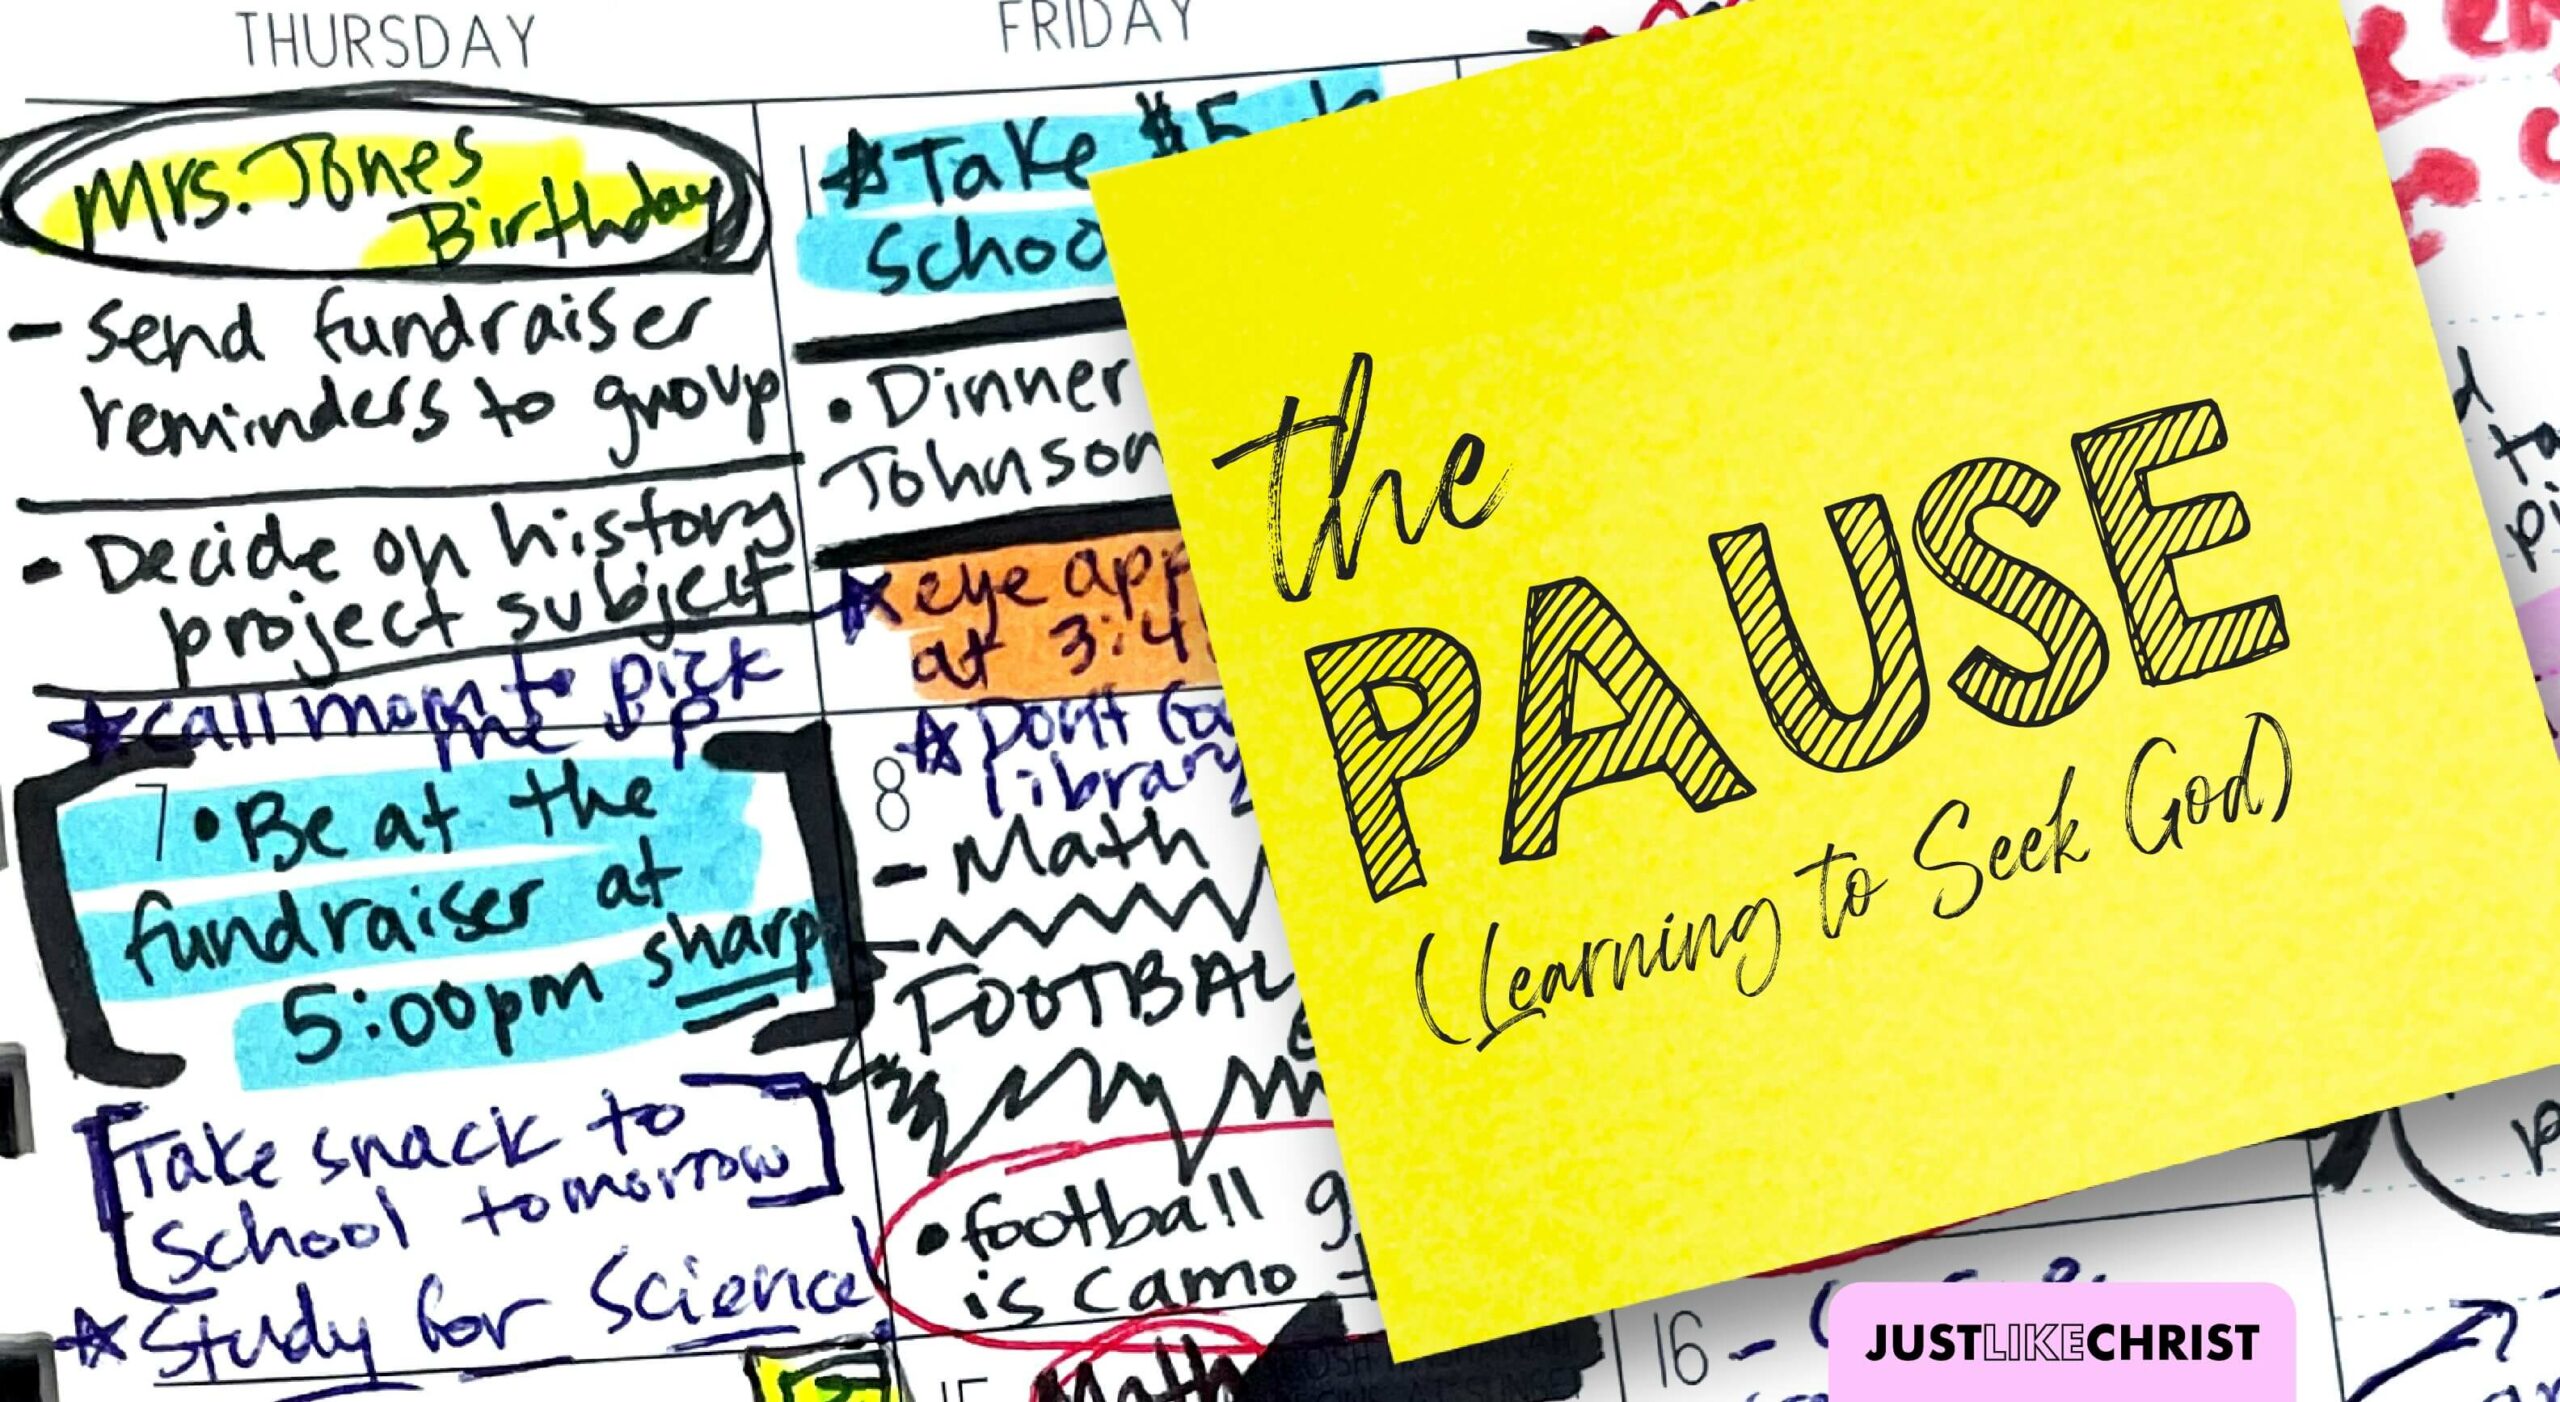 THURSDAY
Mrs. Jones
Birthday
- Send fundraiser
reminders to group
- Decide on history
project subject
call mom to pick
me up
7 • Be at the
fundraiser at
5:00pm sharp
Take snack to
School tomorrow
Study for Science
FRIDAY
1 Take $5
School
• Dinner
Johnson
eye app
at 3:4
8 Dont
library
- Math
FOOTBAL
• football g
is camo
15 Math
16 -
the
PAUSE
(Learning to Seek God)
JUSTLIKECHRIST